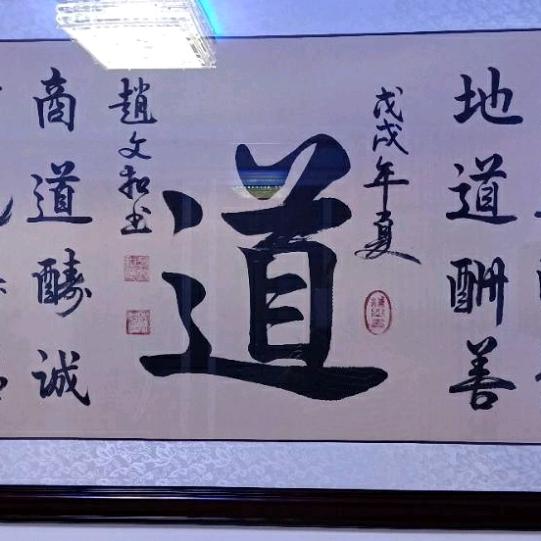 地道酬善
戊戌年夏
道
趙文
商道酬誠